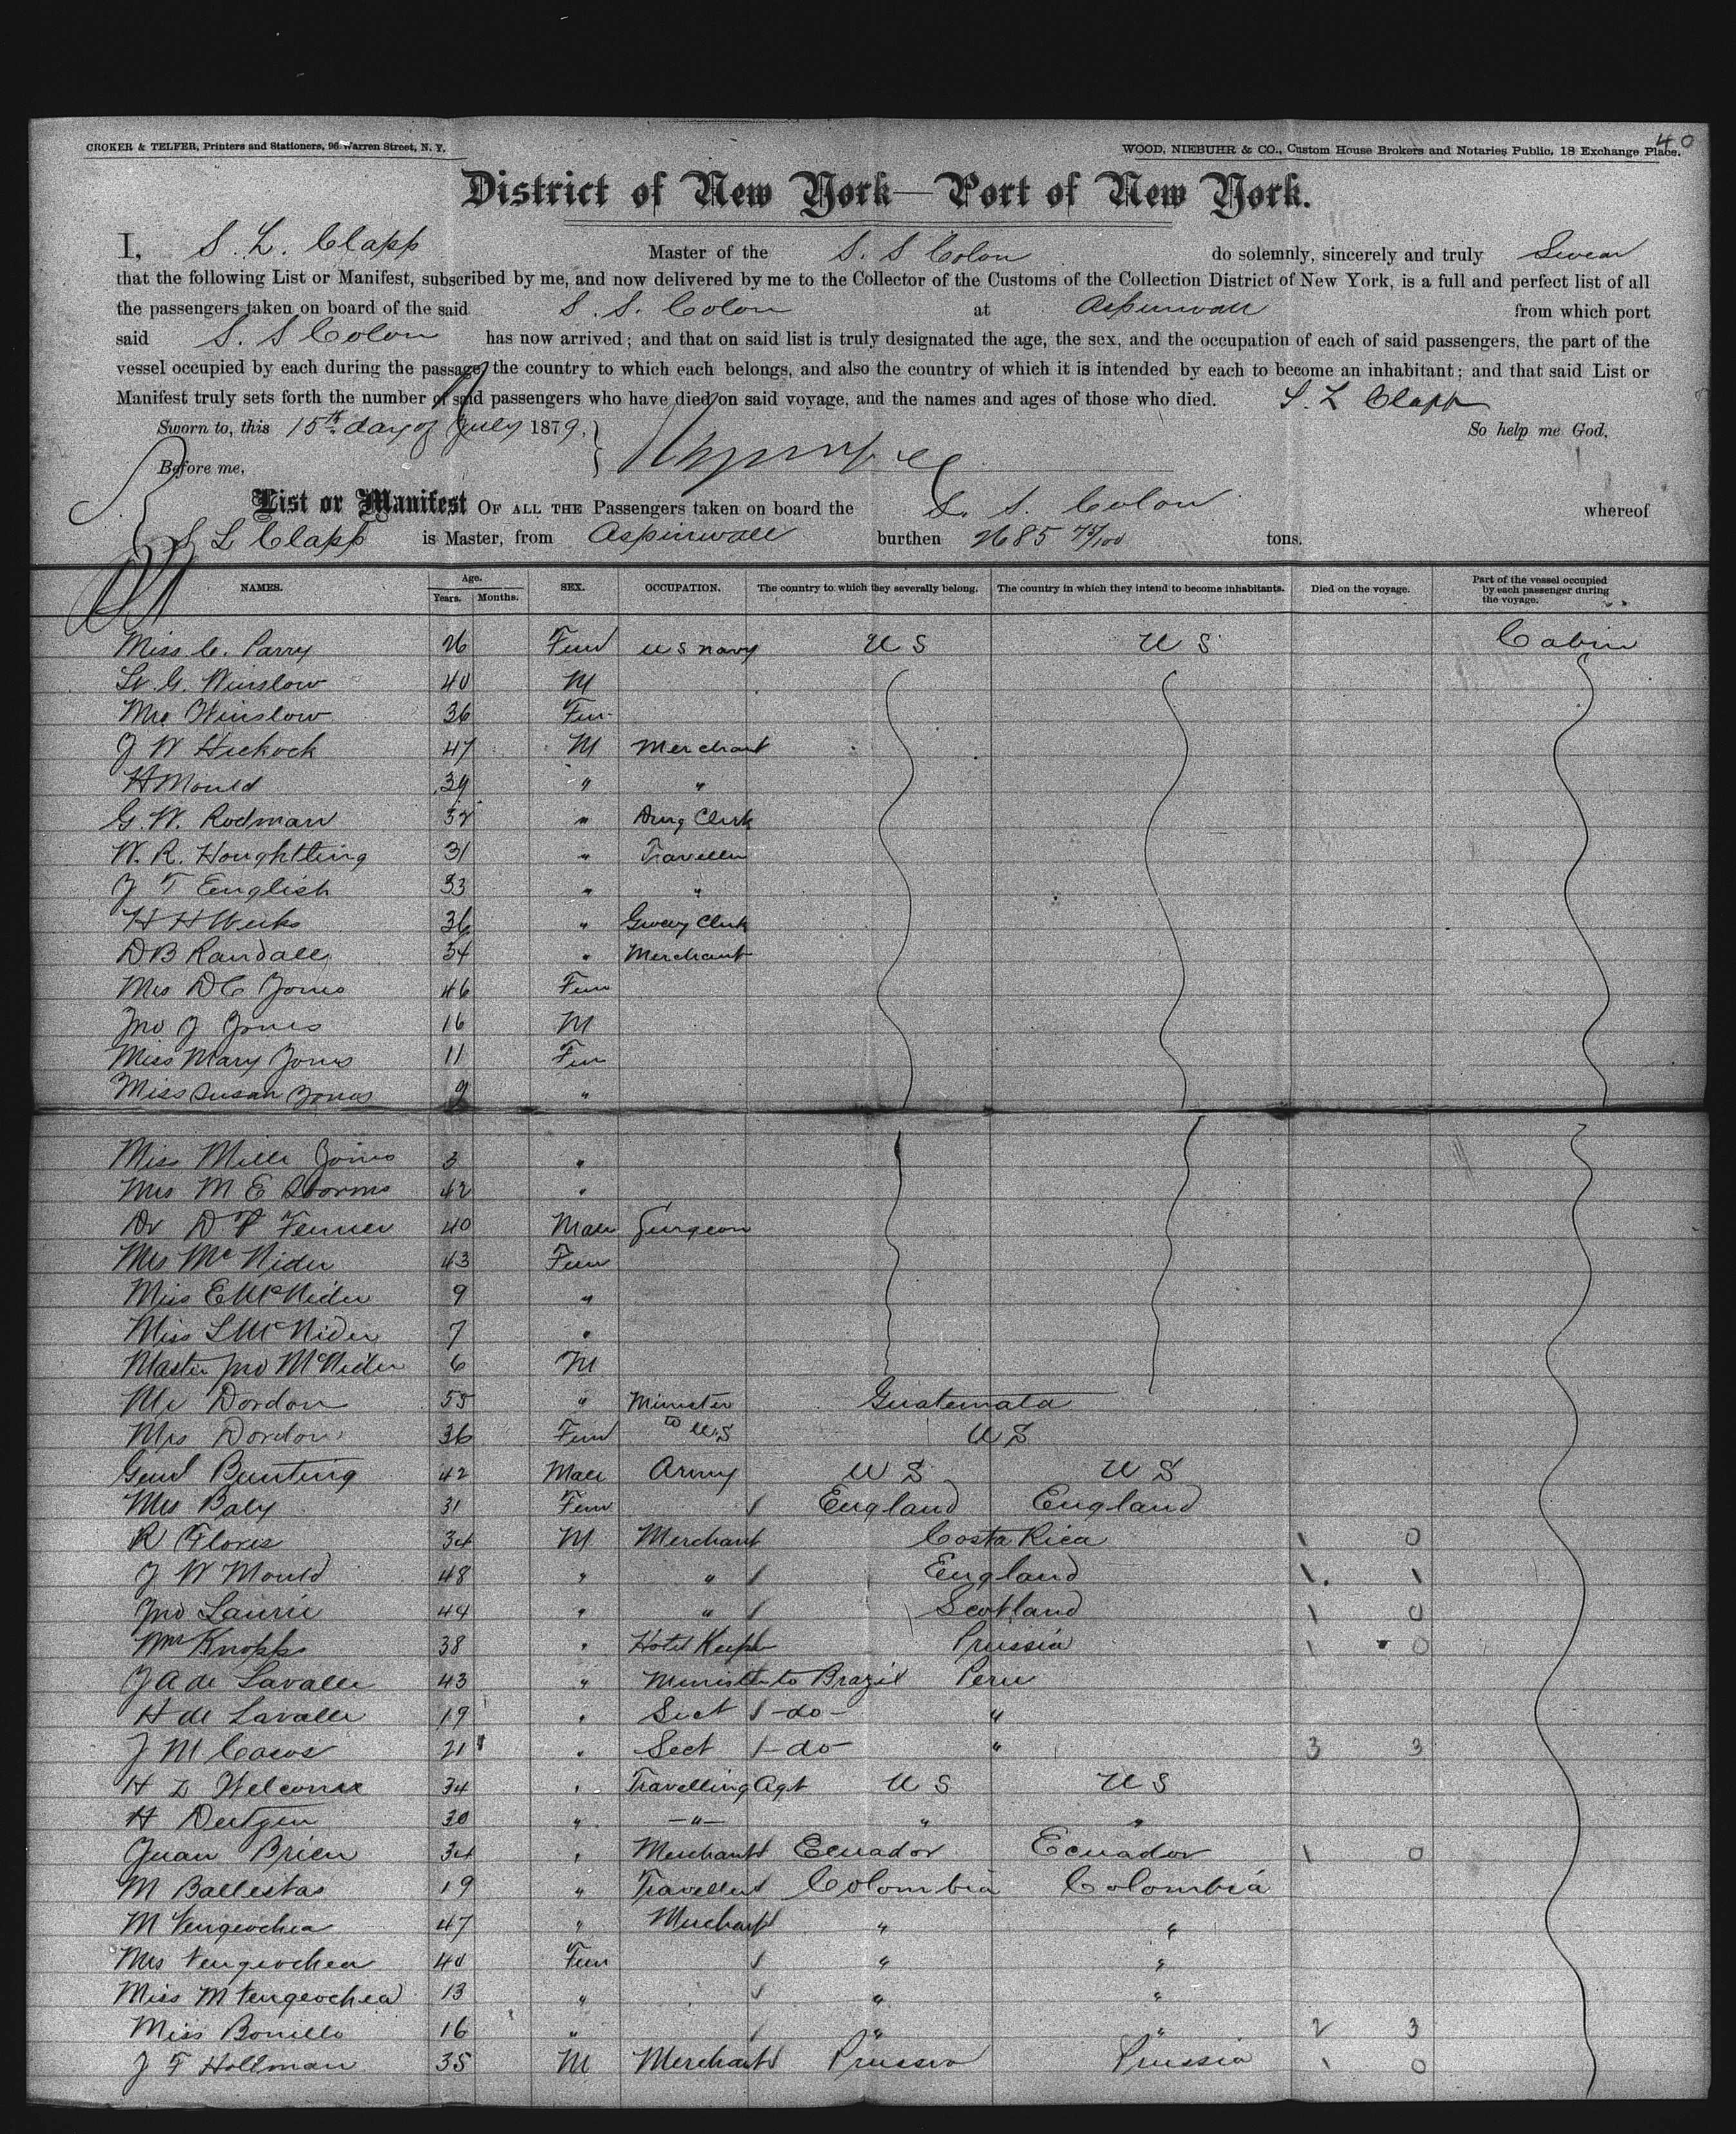 40
CROKER & TELFER, Printers and Stationers, 96 Warren Street, N. Y.
WOOD, NIEBUHR & CO., Custom House Brokers and Notaries Public, 18 Exchange Place.
District of New York—Port of New York.
I, S. L. Clapp Master of the S. S Colon do solemnly, sincerely and truly Swear
that the following List or Manifest, subscribed by me, and now delivered by me to the Collector of the Customs of the Collection District of New York, is a full and perfect list of all
the passengers taken on board of the said S. S. Colon at Aspinwall from which port
said S. S Colon has now arrived; and that on said list is truly designated the age, the sex, and the occupation of each of said passengers, the part of the
vessel occupied by each during the passage, the country to which each belongs, and also the country of which it is intended by each to become an inhabitant; and that said List or
Manifest truly sets forth the number of said passengers who have died on said voyage, and the names and ages of those who died. S. L Clapp
Sworn to, this 15th day of July 1879. So help me God,
Before me,
List or Manifest OF ALL THE Passengers taken on board the S. S. Colon whereof
S L Clapp is Master, from Aspinwall burthen 2685 75/100 tons.
NAMES. Age. Years. Months. SEX. OCCUPATION. The country to which they severally belong. The country in which they intend to become inhabitants. Died on the voyage. Part of the vessel occupied by each passenger during the voyage.
Miss C. Parry 26 Fem U S Navy U S U S Cabin
Lt. G. Winslow 40 M
Mrs Winslow 36 Fem
J W Hickock 47 M Merchant
H Mould 39 " "
G. W. Rodman 32 " Drug Clerk
W. R. Houghtling 31 " Traveller
J T English 33 " "
H H Weeks 36 " Grocery Clerk
D B Randall 34 " Merchant
Mrs D C Jones 46 Fem
Jno J Jones 16 M
Miss Mary Jones 11 Fem
Miss Susan Jones 9 "
Miss Mille Jones 3 "
Mrs M E Storms 42 "
Dr D P Fenner 40 Male Surgeon
Mrs McNider 43 Fem
Miss E McNider 9 "
Miss L McNider 7 "
Master Jno McNider 6 M
Mr Dordon 55 " Minister Guatemala
Mrs Dordon 36 Fem to U.S U S
Genl Bunting 42 Male Army U S U S
Mrs Baly 31 Fem England England
R Flores 34 M Merchant Costa Rica 1 0
J W Mould 48 " " England 1 1
Jno Laurie 44 " " Scotland 1 0
Wm Knopps 38 " Hotel Keeper Prussia 1 0
J A de Lavalle 43 " Minister to Brazil Peru
H de Lavalle 19 " Sect -do- "
J M Casos 21 " Sect -do- " 3 3
H D Welcome 34 " Travelling Agt U S U S
H Deetgen 30 " -"- " "
Juan Brien 34 " Merchant Ecuador Ecuador 1 0
M Ballestas 19 " Traveller Colombia Colombia
M Vengoechea 47 " Merchant " "
Mrs Vengoechea 40 Fem " "
Miss M Vengoechea 13 " " "
Miss Bonillo 16 " " " 2 3
J F Hollman 35 M Merchant Prussia Prussia 1 0